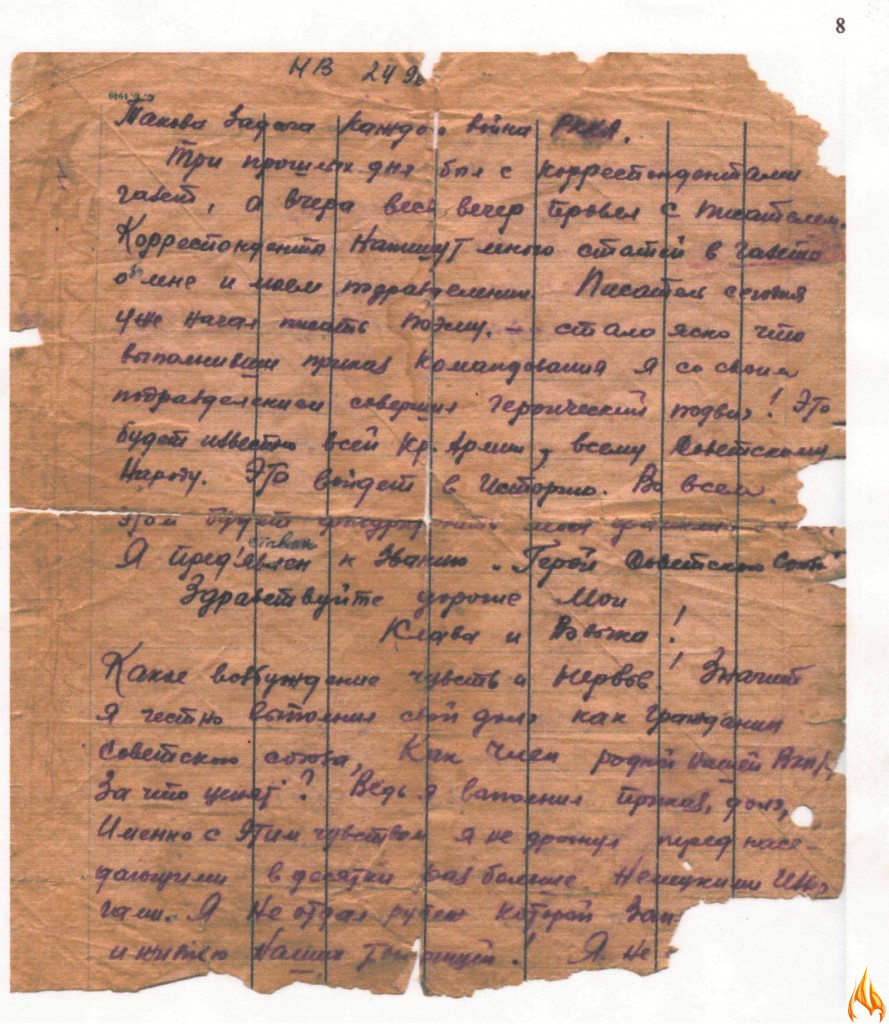 8
НВ 24 9
Такова задача каждого война РККА.
Три прошлых дня был с корреспондентами
газет, а вчера весь вечер провел с писателем.
Корреспонденты напишут много статей в газеты
обо мне и моем подразделении. Писатель сегодня
уже начал писать поэму. – стало ясно что
выполнивши приказ командования я со своим
подразделением совершил героический подвиг! Это
будет известно всей Кр. Армии, всему Советскому
Народу. Это войдет в Историю. Во всем
этом будет фигурировать моя
ставлен
Я пред'явлен к званию "Герой Советского Союз"
Здравствуйте дорогие мои
Клава и Вовочка!
Какое возбуждение чувств и нервов! Значит
я честно выполнил свой долг как гражданин
Советского союза, Как член родной нашей
За что ценят? Ведь я выполнил приказ, долг,
Именно с этим чувством я не дрогнул перед насе-
дающими в десятки раз больше Немецкими
гами. Я не отдал рубеж который зан
и жизнью наших товарищей! Я не